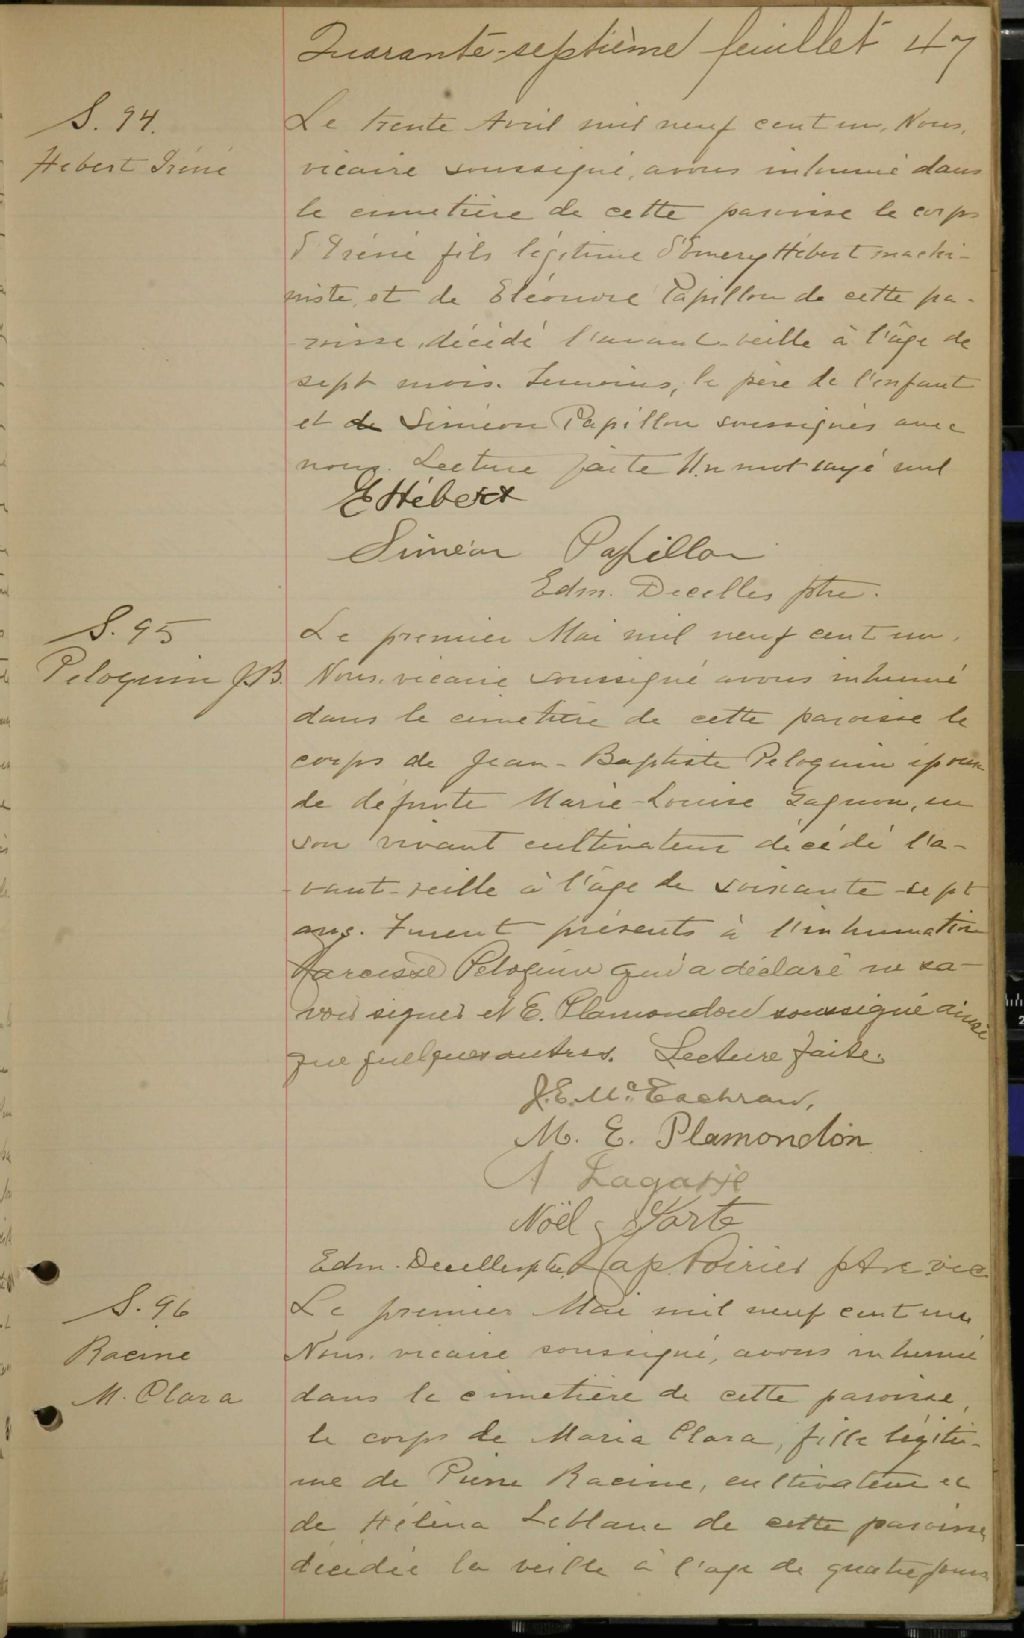 Quarante-septième feuillet 47
S. 94.
Hebert Iréné
Le trente Avril mil neuf cent un, Nous,
vicaire soussigné, avons inhumé dans
le cimetière de cette paroisse le corps
d'Iréné fils légitime d'Emery Hébert machi-
niste, et de Eléonore Papillon de cette pa-
roisse, décédé l'avant-veille à l'âge de
sept mois. Temoins, le père de l'enfant
et de Siméon Papillon soussignés avec
nous. Lecture faite Un mot rayé nul
E Hébert
Siméon Papillon
Edm. Decelles ptre.
S. 95
Peloquin J.B.
Le premier Mai mil neuf cent un,
Nous, vicaire soussigné avons inhumé
dans le cimetière de cette paroisse le
corps de Jean-Baptiste Peloquin époux
de défunte Marie-Louise Gagnon, en
son vivant cultivateur décédé l'a-
vant-veille à l'âge de soixante-sept
ans. Furent présents à l'inhumation
Narcisse Peloquin qui a déclaré ne sa-
voir signer et E. Plamondon soussigné ainsi
que quelques autres. Lecture faite.
J. E. Mc Eachran,
M. E. Plamondon
A Lagassé
Noël
Edm. Decelles ptre. Nap. Poirier ptre vic
S. 96
Racine
M. Clara
Le premier Mai mil neuf cent un
Nous, vicaire soussigné, avons inhumé
dans le cimetière de cette paroisse,
le corps de Maria Clara, fille légiti-
me de Pierre Racine, cultivateur et
de Héléna Leblanc de cette paroisse,
décédée la veille à l'age de quatre jours